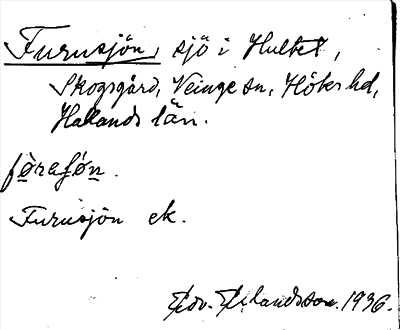 Furusjön, sjö i Hultet,
Skogsgård, Veinge sn, Höks hd,
Hallands län.
fòrafǿn.
Furusjön ek.
Edv. Erlandsson. 1936.